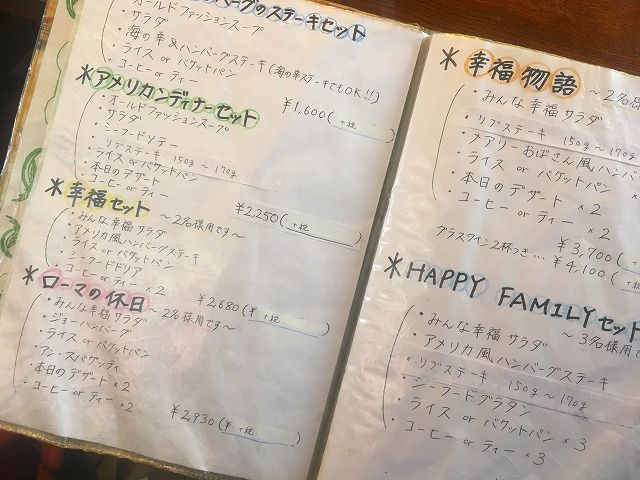 バーグのステーキセット
・オールドファッションスープ
・サラダ
・海の幸&ハンバーグステーキ(海の幸ステーキでもOK!!)
・ライス or バケットパン
・コーヒー or ティー
¥1,600(+税
*アメリカンディナーセット
・オールドファッションスープ
・サラダ
・シーフードソテー
・リブステーキ 150g~170g
・ライス or バケットパン
・本日のデザート
・コーヒー or ティー
¥2,250(+税)
*幸福セット ~2名様用です~
・みんな幸福サラダ
・アメリカ風ハンバーグステーキ
・ライス or バケットパン
・シーフードドリア
・コーヒー or ティー ×2
¥2,680(¥ +税
*ローマの休日 ~2名様用です~
・みんな幸福サラダ
・ジョーハンバーグ
・ライス or バケットパン
・アン・スパゲッティ
・本日のデザート ×2
・コーヒー or ティー ×2
¥2,930(¥ +税)
*幸福物語 ~2名
・みんな幸福サラダ
・リブステーキ 150g~170g
・メアリーおばさん風ハンバ
・ライス or バケットパン ×
・本日のデザート ×2
・コーヒー or ティー ×2
¥3,700(
グラスワイン2杯つき… ¥4,100(+
*HAPPY FAMILYセット
~3名様用
・みんな幸福サラダ
・アメリカ風ハンバーグステーキ
・リブステーキ 150g~170g
・シーフードグラタン
・ライス or バケットパン ×3
・コーヒー or ティー ×3